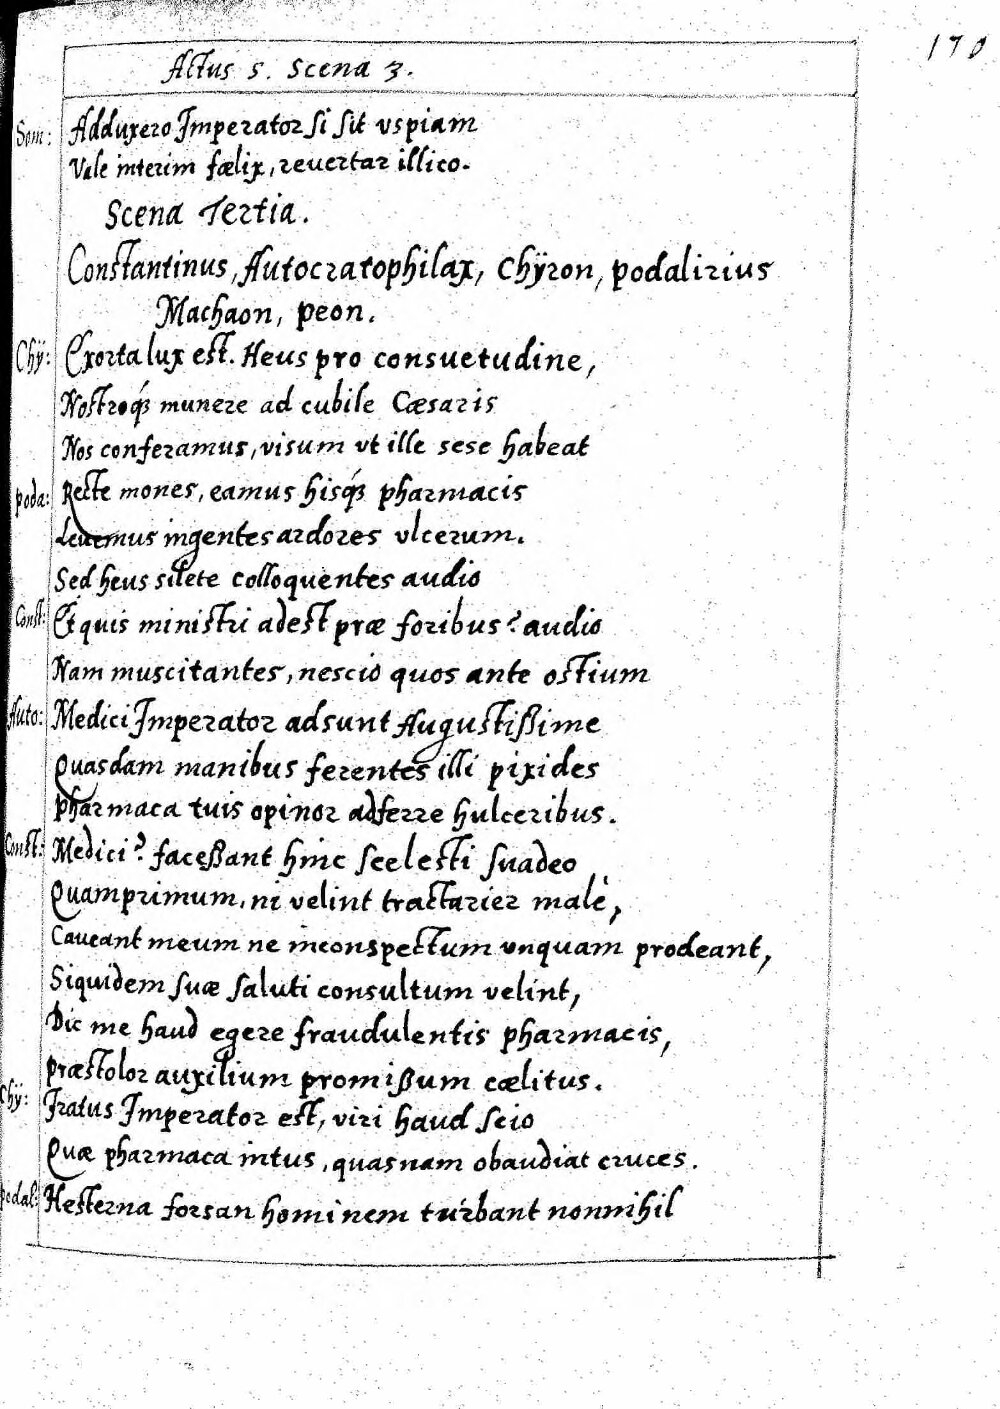 170
Actus 5. Scena 3.
Som: Adduxero Imperator si sit vspiam
Vale interim fœlix, reuertar illico.
Scena Tertia.
Constantinus, Autocratophilax, Chÿron, podalirius
Machaon, peon.
Chÿ: Exorta lux est. Heus pro consuetudine,
Nostroq́ꝫ munere ad cubile Cæsaris
Nos conferamus, visum vt ille sese habeat
poda: Recte mones, eamus hisq́ꝫ pharmacis
Leuemus ingentes ardores vlcerum.
Sed heus silete colloquentes audio
Const: Etquis ministri adest præ foribus? audio
Nam muscitantes, nescio quos ante ostium
Auto: Medici Imperator adsunt Augustißime
Quasdam manibus ferentes illi pixides
pharmaca tuis opinor adferre hulceribus.
Const: Medici? faceßant hinc scelesti suadeo
Quamprimum, ni velint tractarier malè,
Caueant meum ne inconspectum vnquam prodeant,
Siquidem suæ saluti consultum velint,
Dic me haud egere fraudulentis pharmacis,
præstolor auxilium promißum cœlitus.
Chÿ: Iratus Imperator est, viri haud scio
Quæ pharmaca intus, quasnam obaudiat cruces.
podal: Hesterna forsan hominem turbant nonnihil